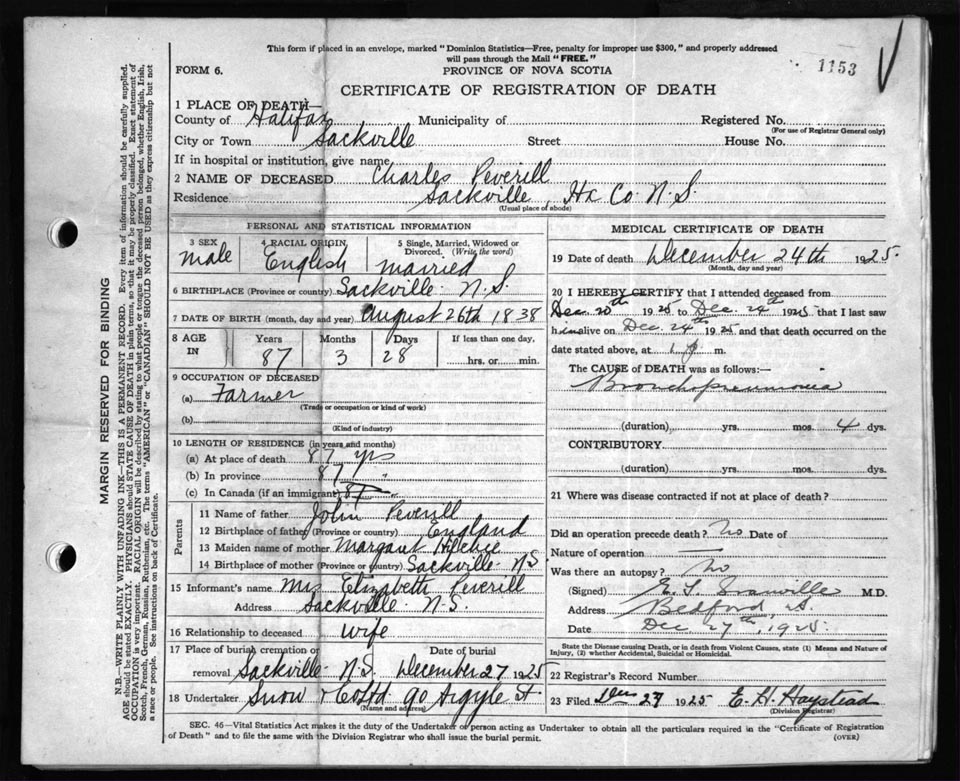 This form if placed in an envelope, marked "Dominion Statistics—Free, penalty for improper use $300," and properly addressed
will pass through the Mail "FREE."
FORM 6.
PROVINCE OF NOVA SCOTIA
1153
CERTIFICATE OF REGISTRATION OF DEATH
1 PLACE OF DEATH—
County of Halifax Municipality of Registered No.
(For use of Registrar General only)
City or Town Sackville Street House No.
If in hospital or institution, give name
2 NAME OF DECEASED Charles Peverill
Residence Sackville, Hx Co. N.S.
(Usual place of abode)
PERSONAL AND STATISTICAL INFORMATION
3 SEX 4 RACIAL ORIGIN 5 Single, Married, Widowed or
Divorced. (Write the word)
Male English Married
6 BIRTHPLACE (Province or country) Sackville N.S.
7 DATE OF BIRTH (month, day and year) August 26th 1838
8 AGE Years Months Days If less than one day,
IN 87 3 28 hrs. or min.
9 OCCUPATION OF DECEASED
(a) Farmer
(Trade or occupation or kind of work)
(b)
(Kind of industry)
10 LENGTH OF RESIDENCE (in years and months)
(a) At place of death 87 yrs
(b) In province 87 "
(c) In Canada (if an immigrant) 87 "
Parents
11 Name of father John Peverill
12 Birthplace of father (Province or country) England
13 Maiden name of mother Margaret
14 Birthplace of mother (Province or country) Sackville N.S
15 Informant's name Mrs Elizabeth Peverill
Address Sackville N.S.
16 Relationship to deceased Wife
17 Place of burial cremation or Date of
removal Sackville N.S. December 27 1925
18 Undertaker Snow & Co Ltd 90 Argyle St.
(Name and address)
MEDICAL CERTIFICATE OF DEATH
19 Date of death December 24th 1925.
(Month, day and year)
20 I HEREBY CERTIFY that I attended deceased from
Dec. 20th 1925 to Dec. 24th 1925 that I last saw
him alive on Dec. 24th 1925 and that death occurred on
date stated above, at 1 p m.
The CAUSE of DEATH was as follows:—
Bronchopneumonia
(duration) yrs. mos. 4 dys.
CONTRIBUTORY.
(duration) yrs. mos. dys.
21 Where was disease contracted if not at place of death?
Did an operation precede death? No Date of
Nature of operation —
Was there an autopsy? No
(Signed) E. M.D.
Address Bedford
Date Dec 27th, 1925.
State the Disease causing Death, or in death from Violent Causes, state (1) Means and Nature of
Injury, (2) whether Accidental, Suicidal or Homicidal.
22 Registrar's Record Number
23 Filed 27 1925 E. H. Haystead
(Division Registrar)
SEC. 46—Vital Statistics Act makes it the duty of the Undertaker or person acting as Undertaker to obtain all the particulars required in the "Certificate of Registration
of Death" and to file the same with the Division Registrar who shall issue the burial permit.
(OVER)
MARGIN RESERVED FOR BINDING
N.B.—WRITE PLAINLY WITH UNFADING INK—THIS IS A PERMANENT RECORD. Every item of information should be carefully supplied.
AGE should be stated EXACTLY. PHYSICIANS should STATE CAUSE OF DEATH in plain terms, so that it may be properly classified. Exact statement of
OCCUPATION is very important. RACIAL ORIGIN will be described by stating to what people or tongue the deceased person belonged, whether English, Irish,
Scotch, French, German, Russian, Ruthenian, etc. The terms "AMERICAN" or "CANADIAN" SHOULD NOT BE USED as they express citizenship but not
a race or people. See instructions on back of Certificate.